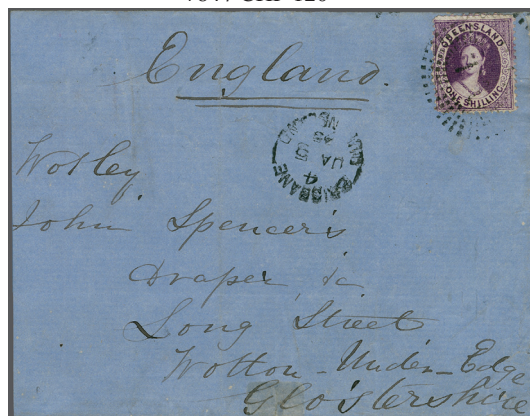 England.
QUEENSLAND
ONE SHILLING
BRISBANE
Wotley
John Spencer's
Draper &c
Long Street
Wotton-Under-Edge
Glostershire